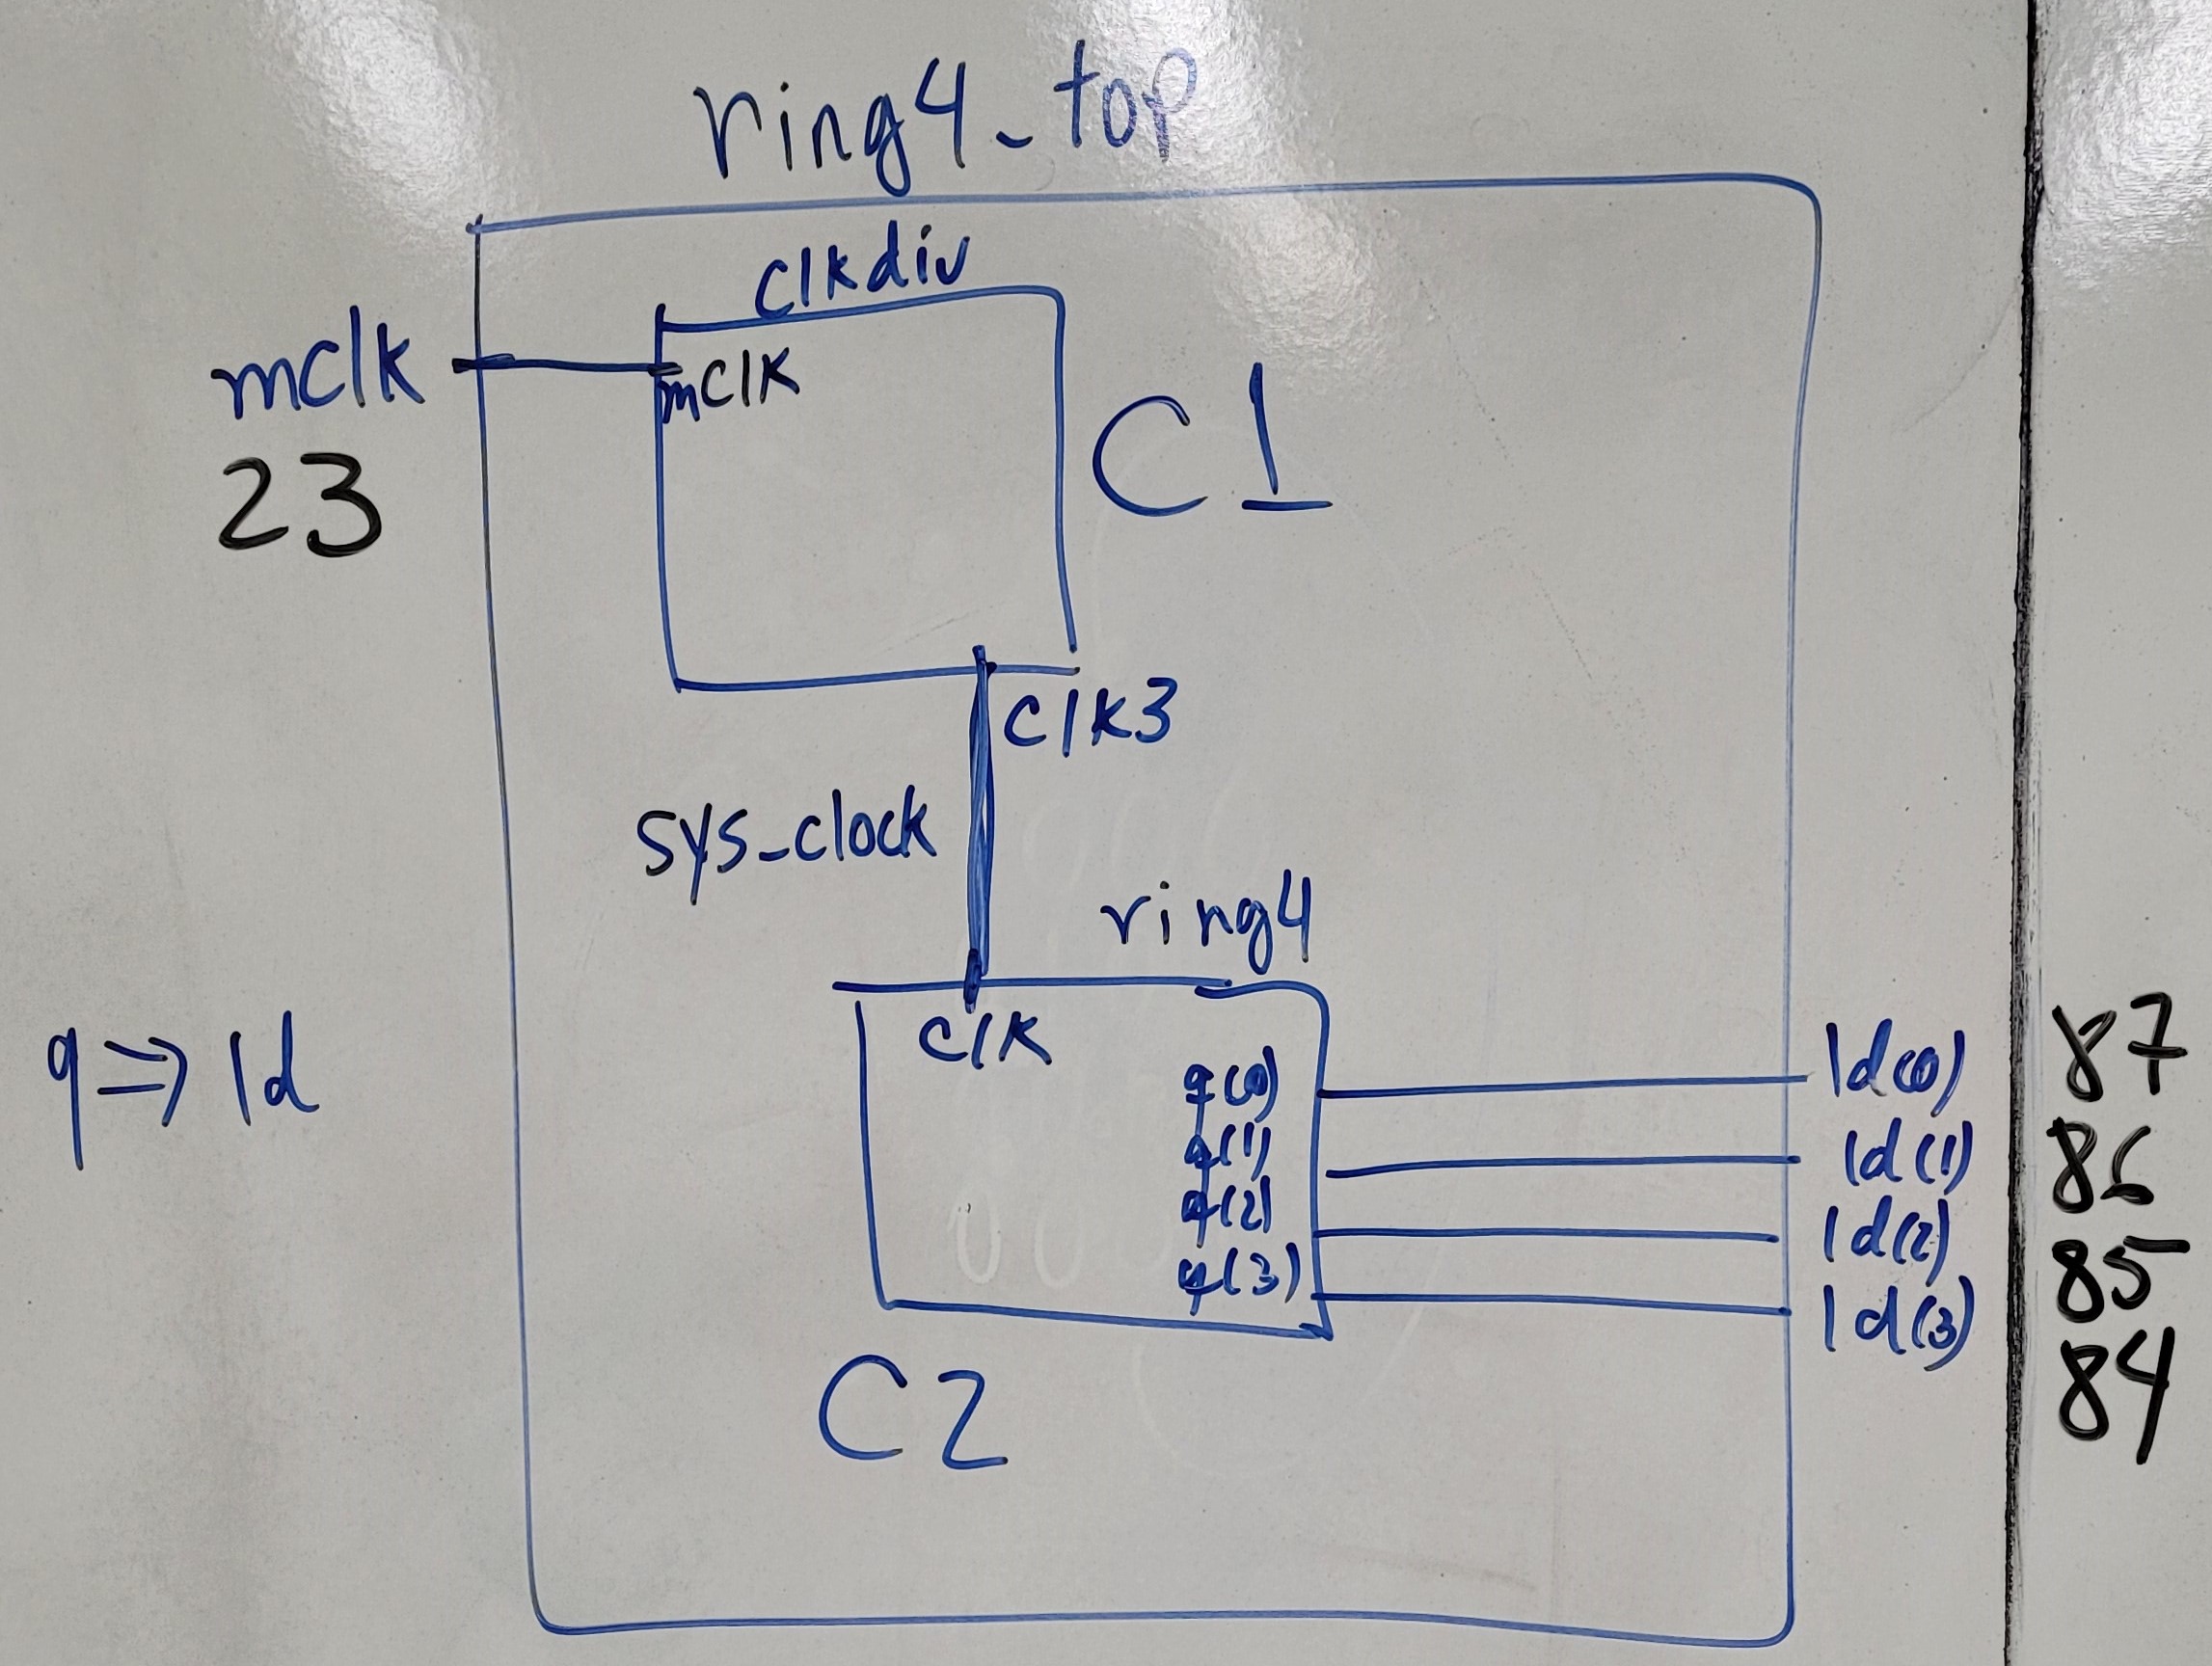 ring4_top
clkdiv
mclk
mclk
23
C1
clk3
sys_clock
ring4
clk
q => ld
q(0)
q(1)
q(2)
q(3)
ld(0) 87
ld(1) 86
ld(2) 85
ld(3) 84
C2